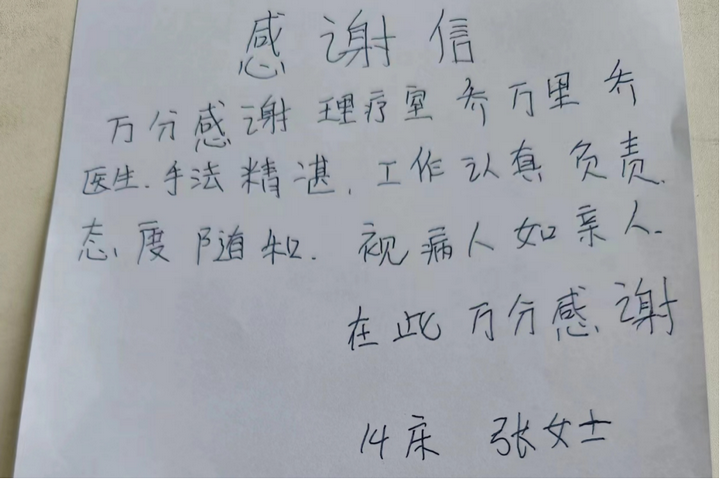 感谢信
万分感谢理疗室乔万里乔
医生.手法精湛.工作认真负责.
态度随和.视病人如亲人.
在此万分感谢
14床 张女士